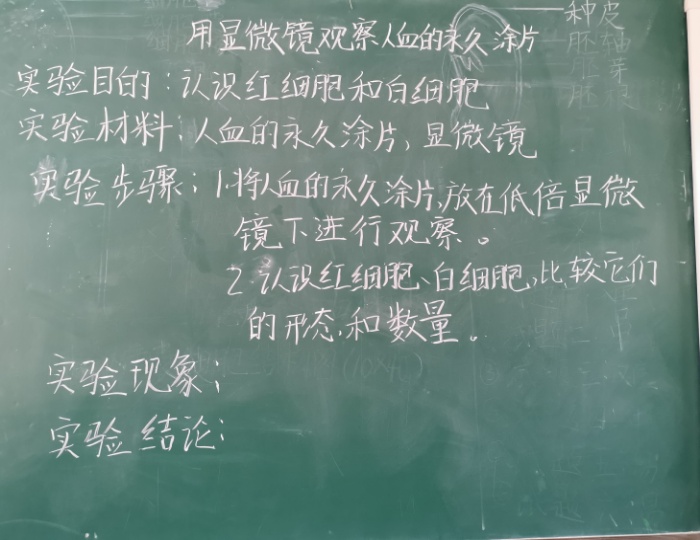 用显微镜观察人血的永久涂片
实验目的：认识红细胞和白细胞
实验材料：人血的永久涂片，显微镜
实验步骤：1.将人血的永久涂片，放在低倍显微
镜下进行观察。
2.认识红细胞、白细胞，比较它们
的形态，和数量。
实验现象：
实验结论：
种皮
胚轴
胚芽
胚根